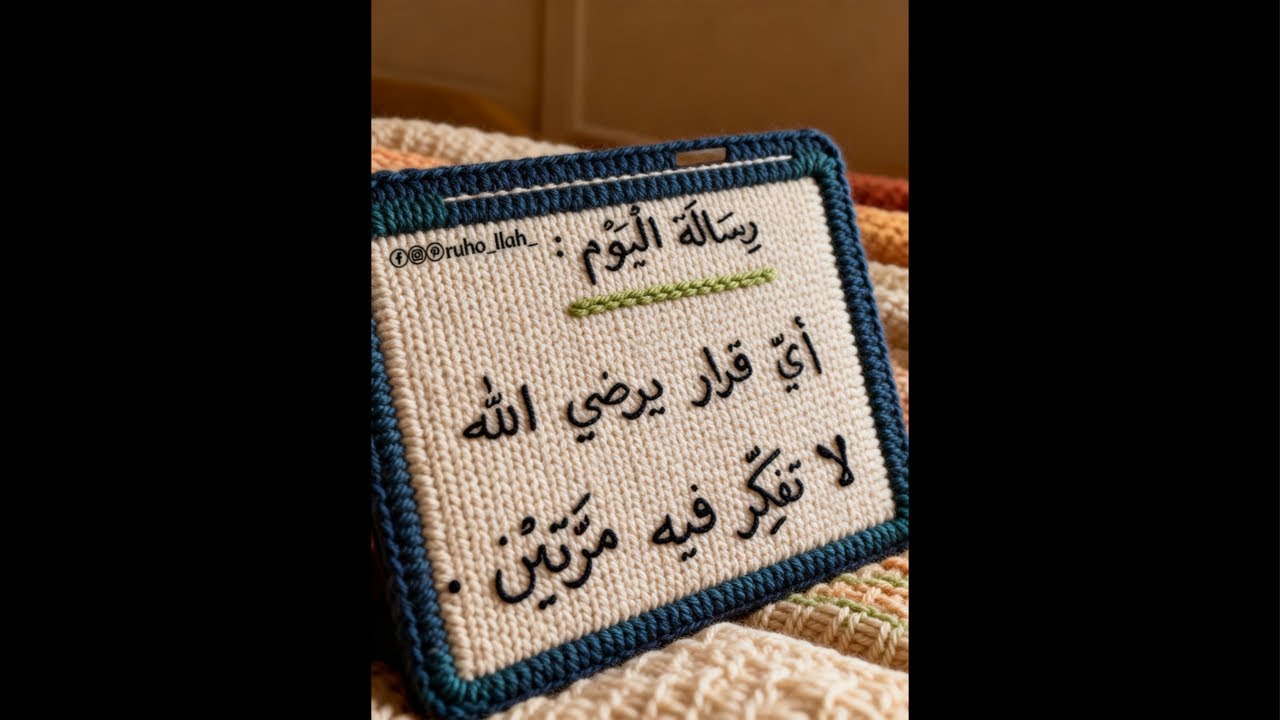 رِسَالَة الْيَوْم :
ruho_llah_
أيّ قرار يرضي الله
لا تفكِّر فيه مرَّتَيْن .